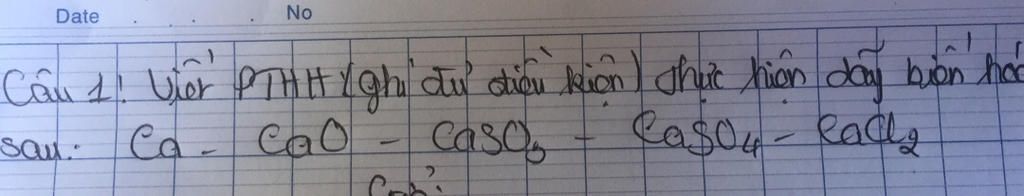 Date . . . No
Câu 1: Viết PTHH (ghi đủ điều kiện) thực hiện dãy biến hóa
sau: Ca - CaO - CaSO3 - CaSO4 - CaCl2